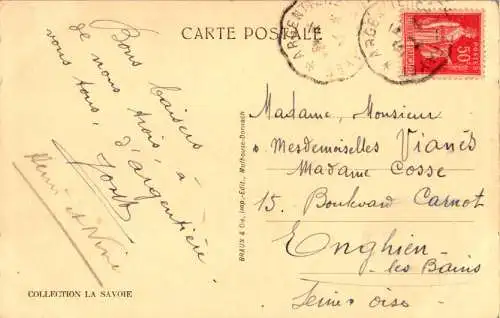 CARTE POSTALE
ARGENTIERE
ARGENTIERE
50c
POSTES
Bons baisers
de nous trois, à
vous tous, d'argentière.
Henri et Nine
COLLECTION LA SAVOIE
BRAUN & Cie, Imp.-Édit., Mulhouse-Dornach
Madame, Monsieur
Mesdemoiselles Vianès
Madame Cosse
15. Boulevard Carnot
Enghien
les Bains
Seine & Oise